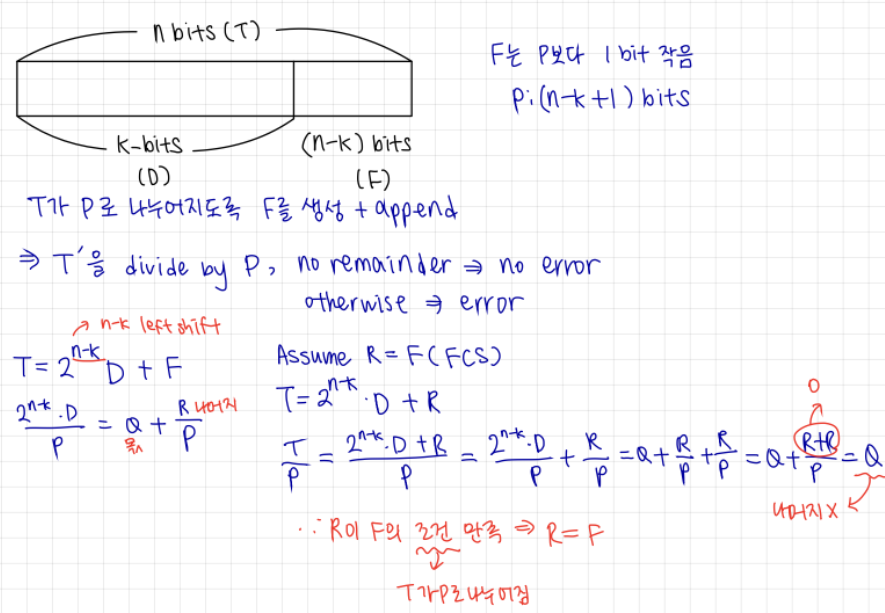 n bits (T)
F는 P보다 1 bit 작음
P: (n-k+1) bits
k-bits
(n-k) bits
(D)
(F)
T가 P로 나누어지도록 F를 생성 + append
⇒ T'을 divide by P, no remainder ⇒ no error
otherwise ⇒ error
↗ n-k left shift
T = 2^{n-k} D + F
Assume R = F (FCS)
T = 2^{n-k}·D + R
\frac{2^{n-k}·D}{P} = Q + \frac{R}{P}
나머지
몫
0
\frac{T}{P} = \frac{2^{n-k}·D + R}{P} = \frac{2^{n-k}·D}{P} + \frac{R}{P} = Q + \frac{R}{P} + \frac{R}{P} = Q + \frac{R+R}{P} = Q
나머지X
∵ R이 F의 조건 만족 ⇒ R = F
T가 P로 나누어짐